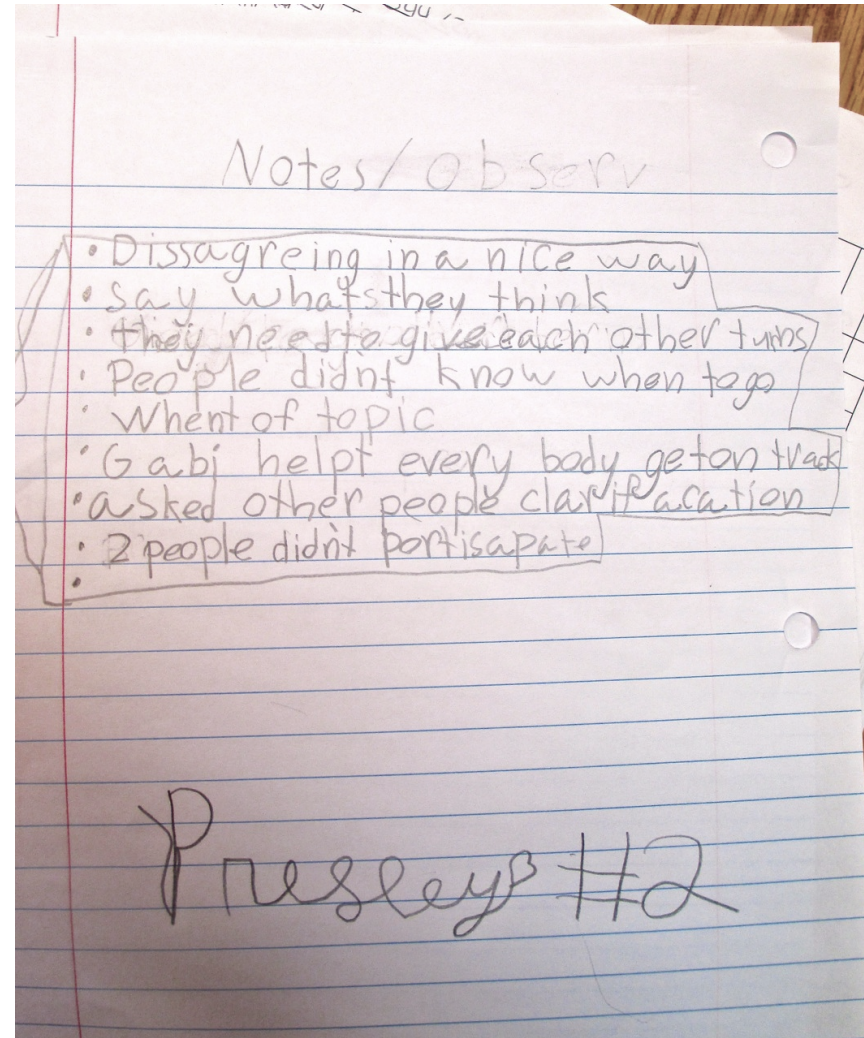 Notes/Observ
• Dissagreing in a nice way
• Say whatsthey think
• they need to give each other turns
• People didnt know when to go
• Whent of topic
• Gabi helpt every body get on track
• asked other people clarifacation
• 2 people didn't portisapate
•
Presley #2